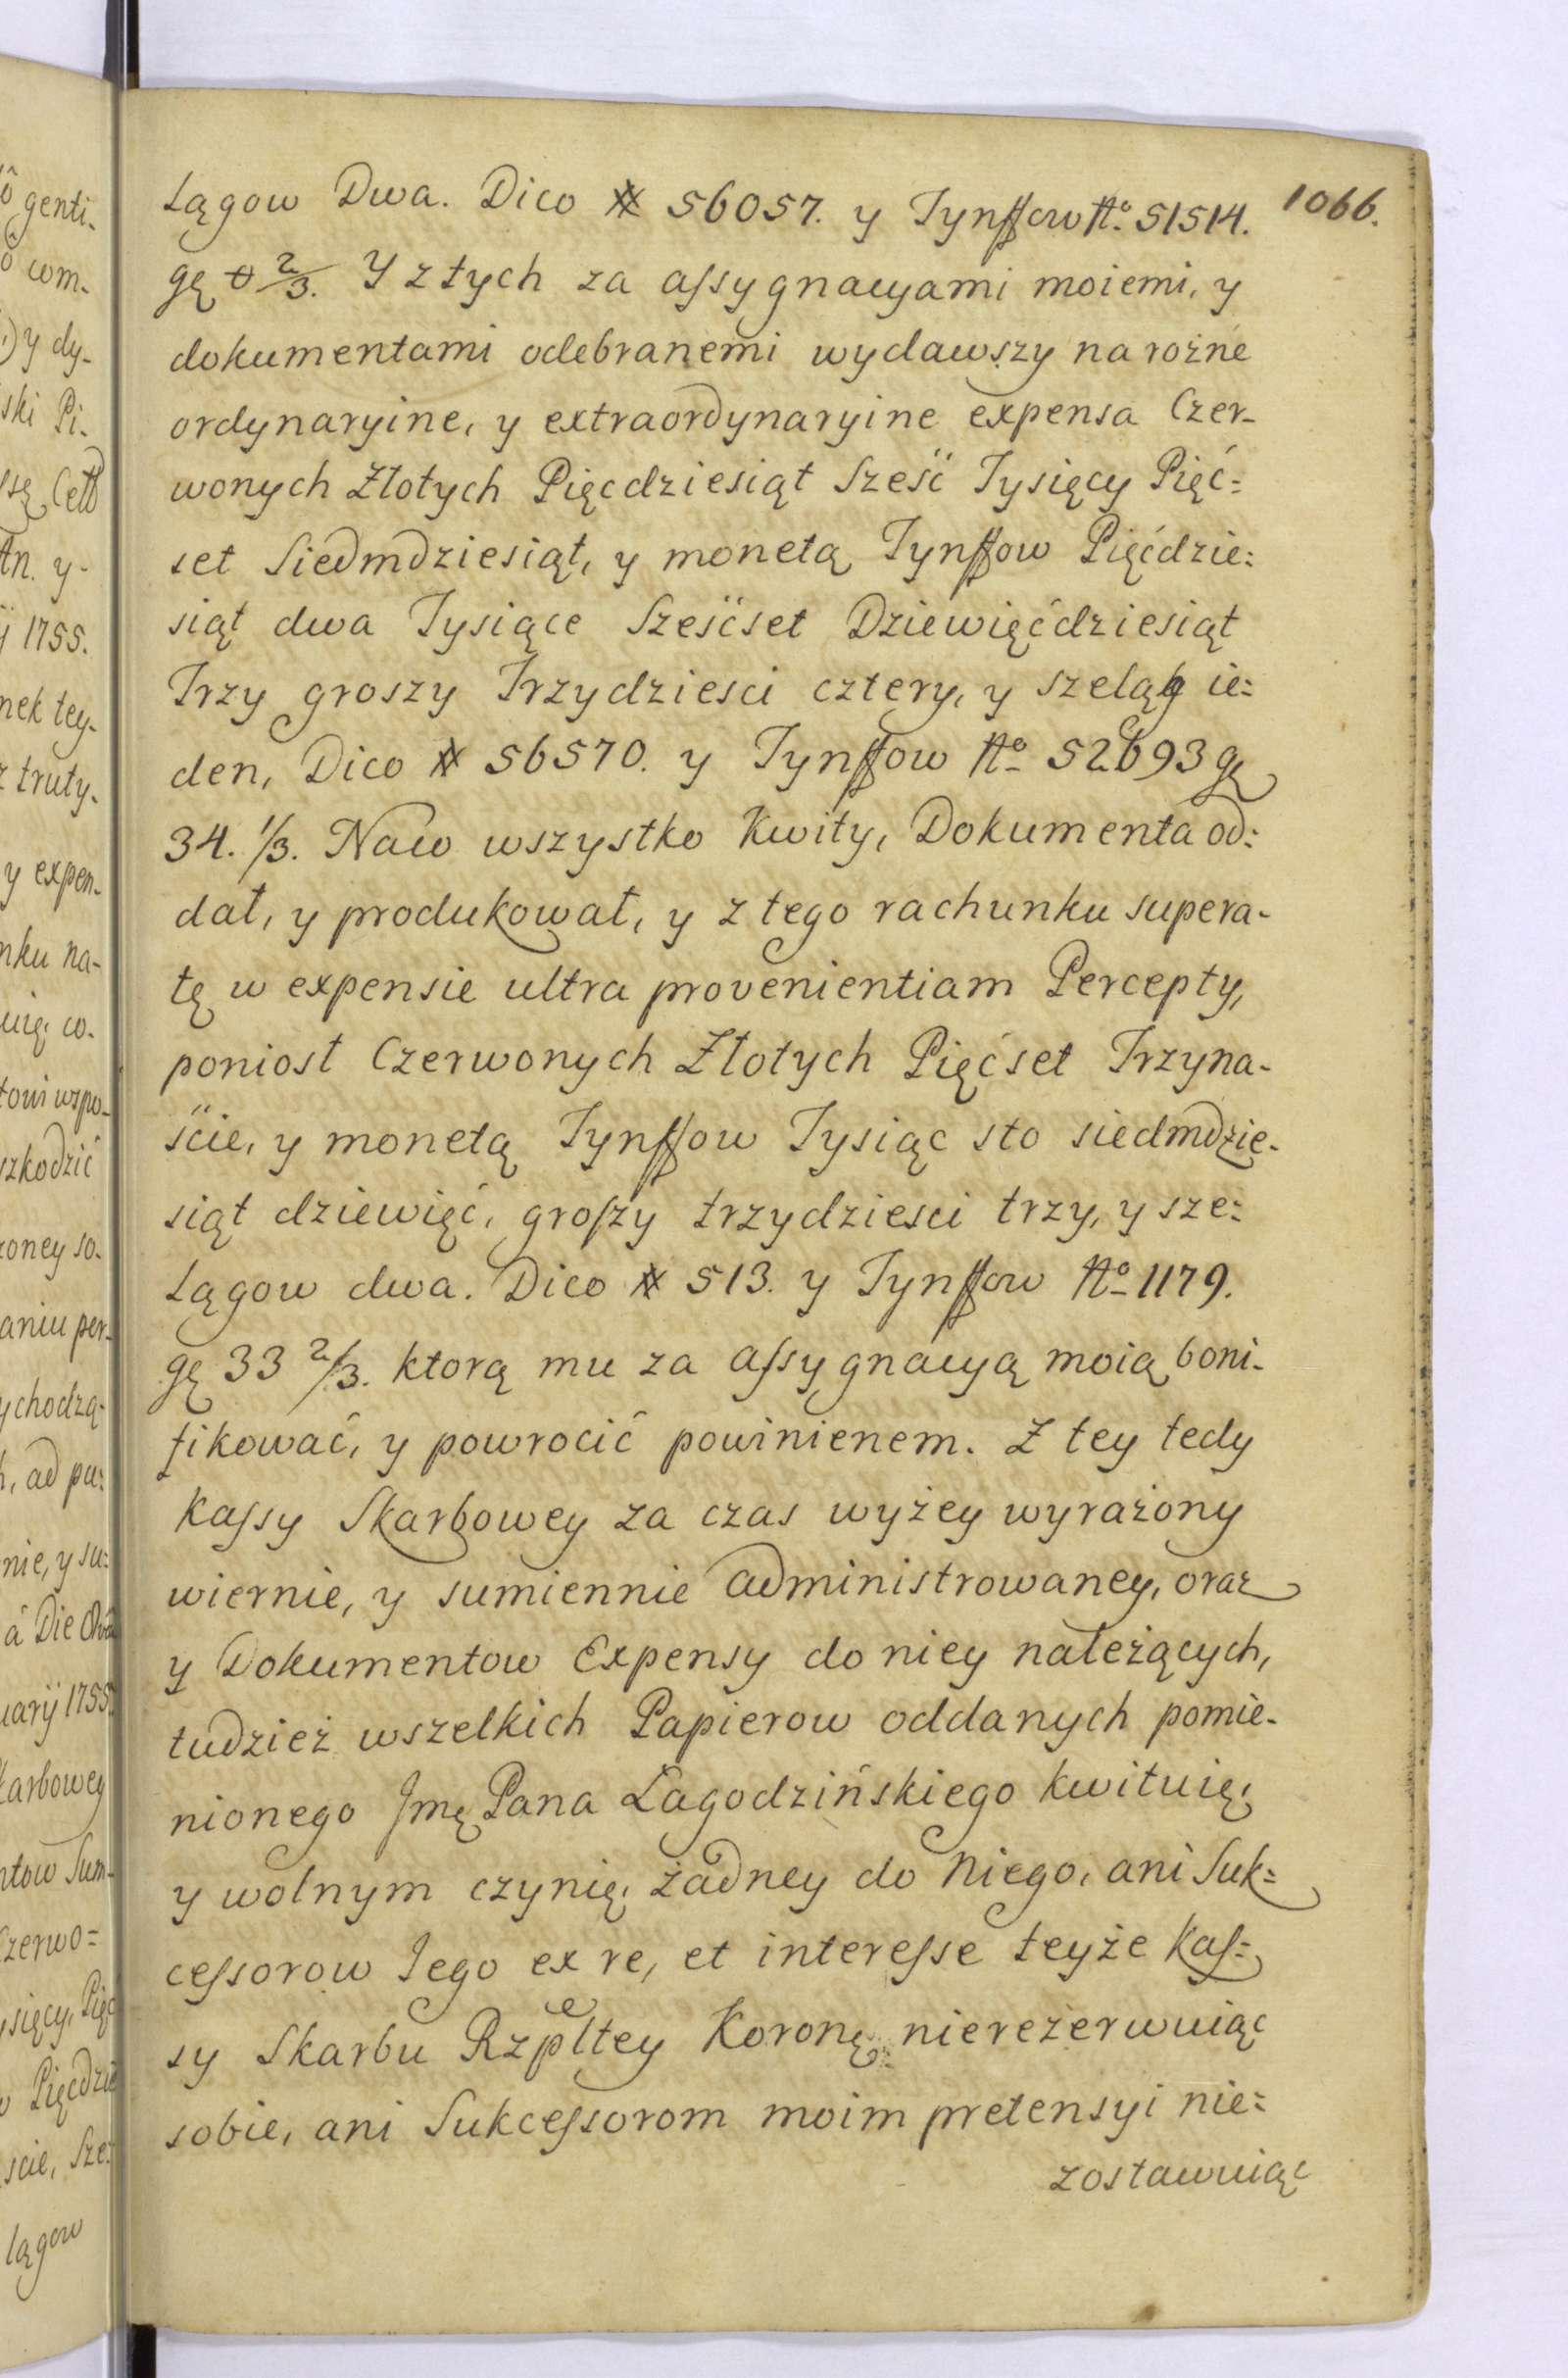 1066.
lągow Dwa. Dico # 56057. y Tynffow No. 51514.
gę 0 2/3. Y z tych za assygnacyami moiemi, y
dokumentami odebranemi wydawszy na rożne
ordynaryine, y extraordynaryine expensa Czer-
wonych Złotych Pięcdziesiąt Sześć Tysięcy Pięć=
set Siedmdziesiąt, y monetą Tynffow Pięćdzie=
siąt dwa Tysiące Sześćset Dziewięćdziesiąt
Trzy groszy Trzydziesci cztery, y szeląg ie=
den, Dico # 56570. y Tynffow No 52693 gę
34. 1/3. Na co wszystko Kwity, Dokumenta od=
dał, y produkował, y z tego rachunku supera-
tę w expensie ultra provenientiam Percepty,
poniosł Czerwonych Złotych Pięćset Trzyna-
ście, y monetą Tynffow Tysiąc sto siedmdzie-
siąt dziewięć, groszy trzydziesci trzy, y sze=
lągow dwa. Dico # 513. y Tynffow No 1179.
gę 33 2/3. ktorą mu za assygnacyą moią boni-
fikować, y powrocić powinienem. Z tey tedy
Kassy Skarbowey za czas wyżey wyrażony
wiernie, y sumiennie administrowaney, oraz
y Dokumentow Expensy do niey należących,
tudzież wszelkich Papierow oddanych pomie-
nionego Jmę Pana Łagodzińskiego kwituię,
y wolnym czynię, żadney do Niego, ani Suk=
cessorow Jego ex re, et interesse teyże Kas=
sy Skarbu Rzpltey Koronę nierezerwuiąc
sobie, ani Sukcessorom moim pretensyi nie=
zostawuiąc